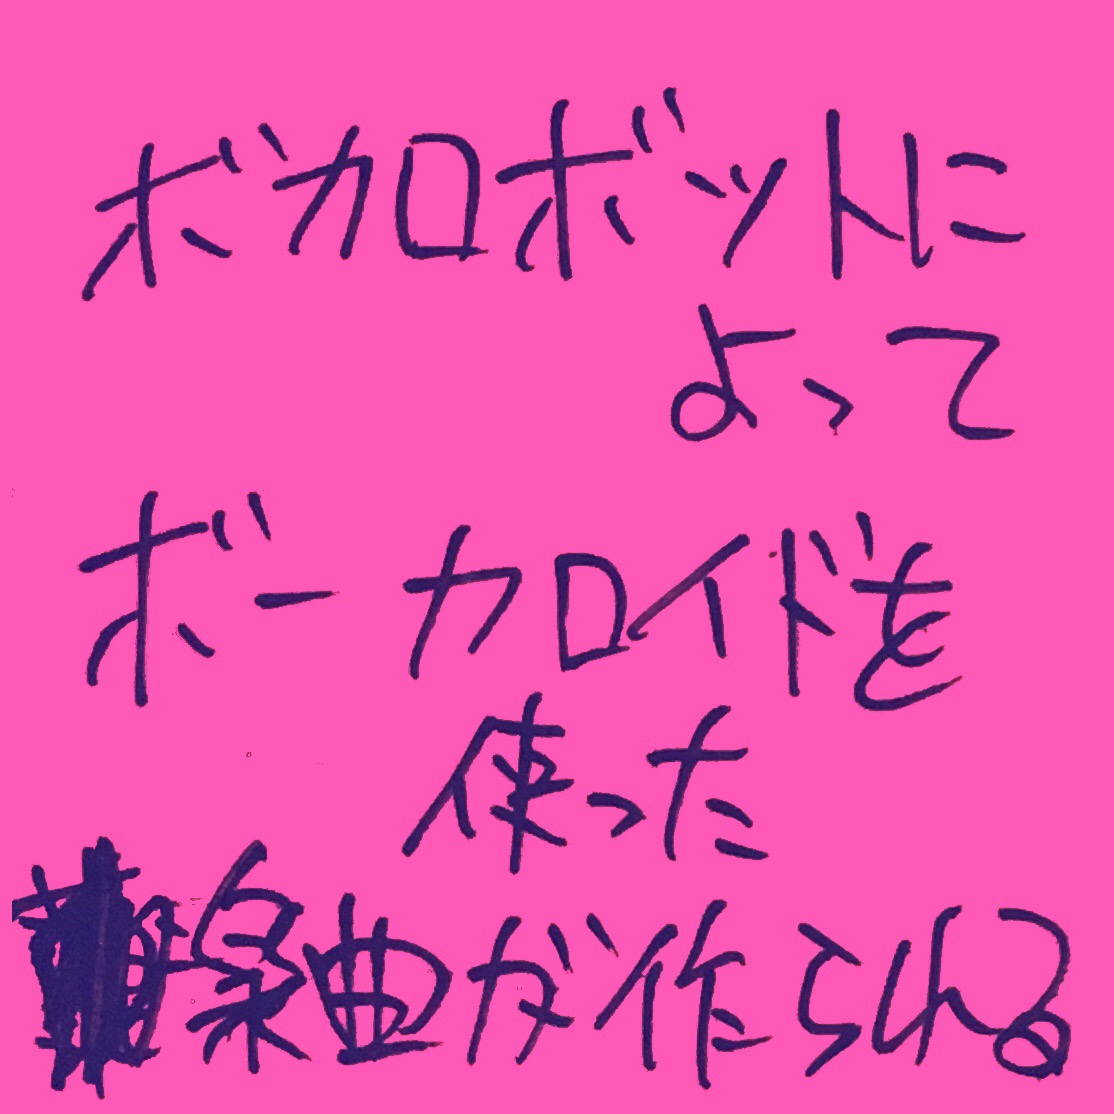 ボカロボットに
よって
ボーカロイドを
使った
楽曲が作られる